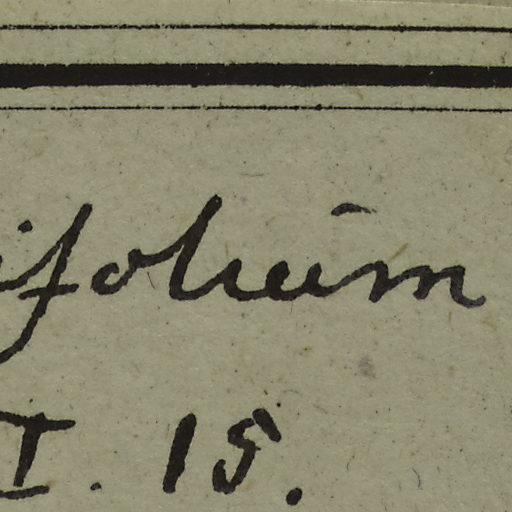 ifolium
I. 15.